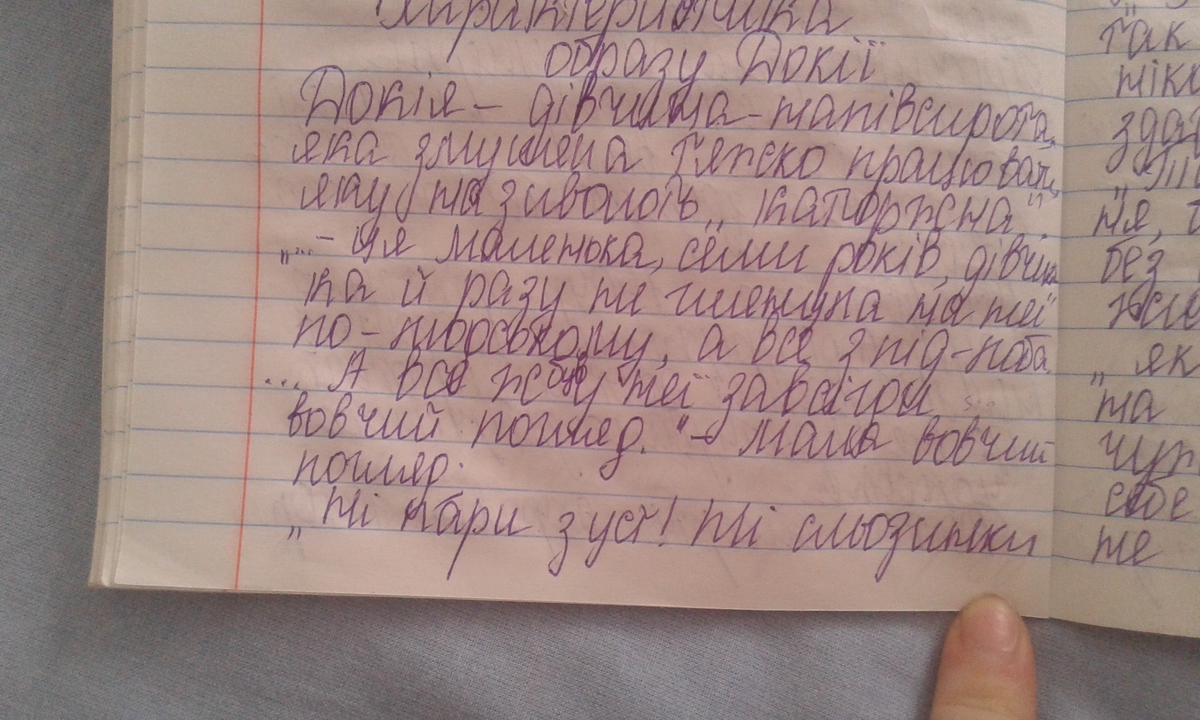 Характеристика
образу Докії
Докія – дівчина-напівсирота,
яка змушена тяжко працювати,
яку називають „каторжна".
„...– ця маленька, семи років, дівчин
ка й разу не глянула на неї
по-людському, а все з під-лоба
... А все ж був неї завсігди
вовчий погляд." – мала вовчий
погляд.
„Ні пари з уст! Ні сльозинки
так
зда
ня,
без
„як
на
своє
не